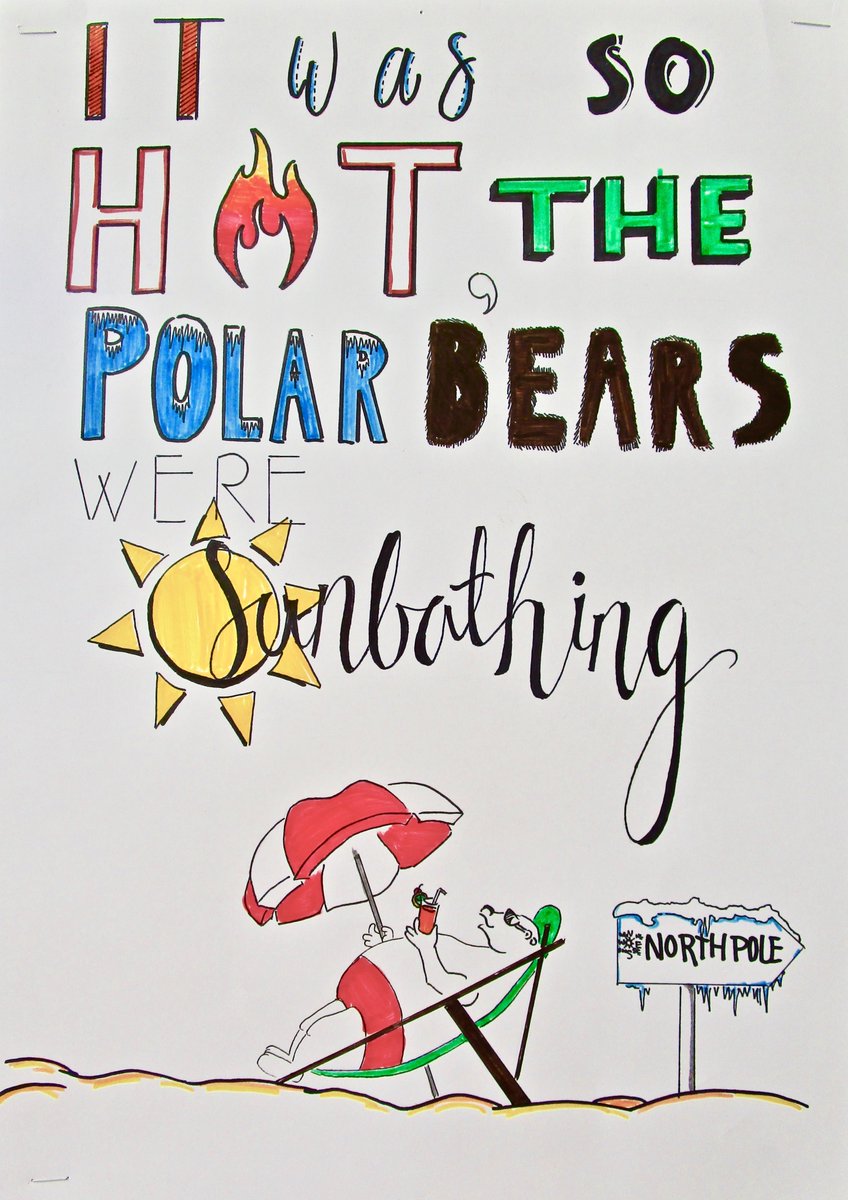 IT was SO
HOT, THE
POLAR BEARS
WERE
Sunbathing
THE
NORTH POLE